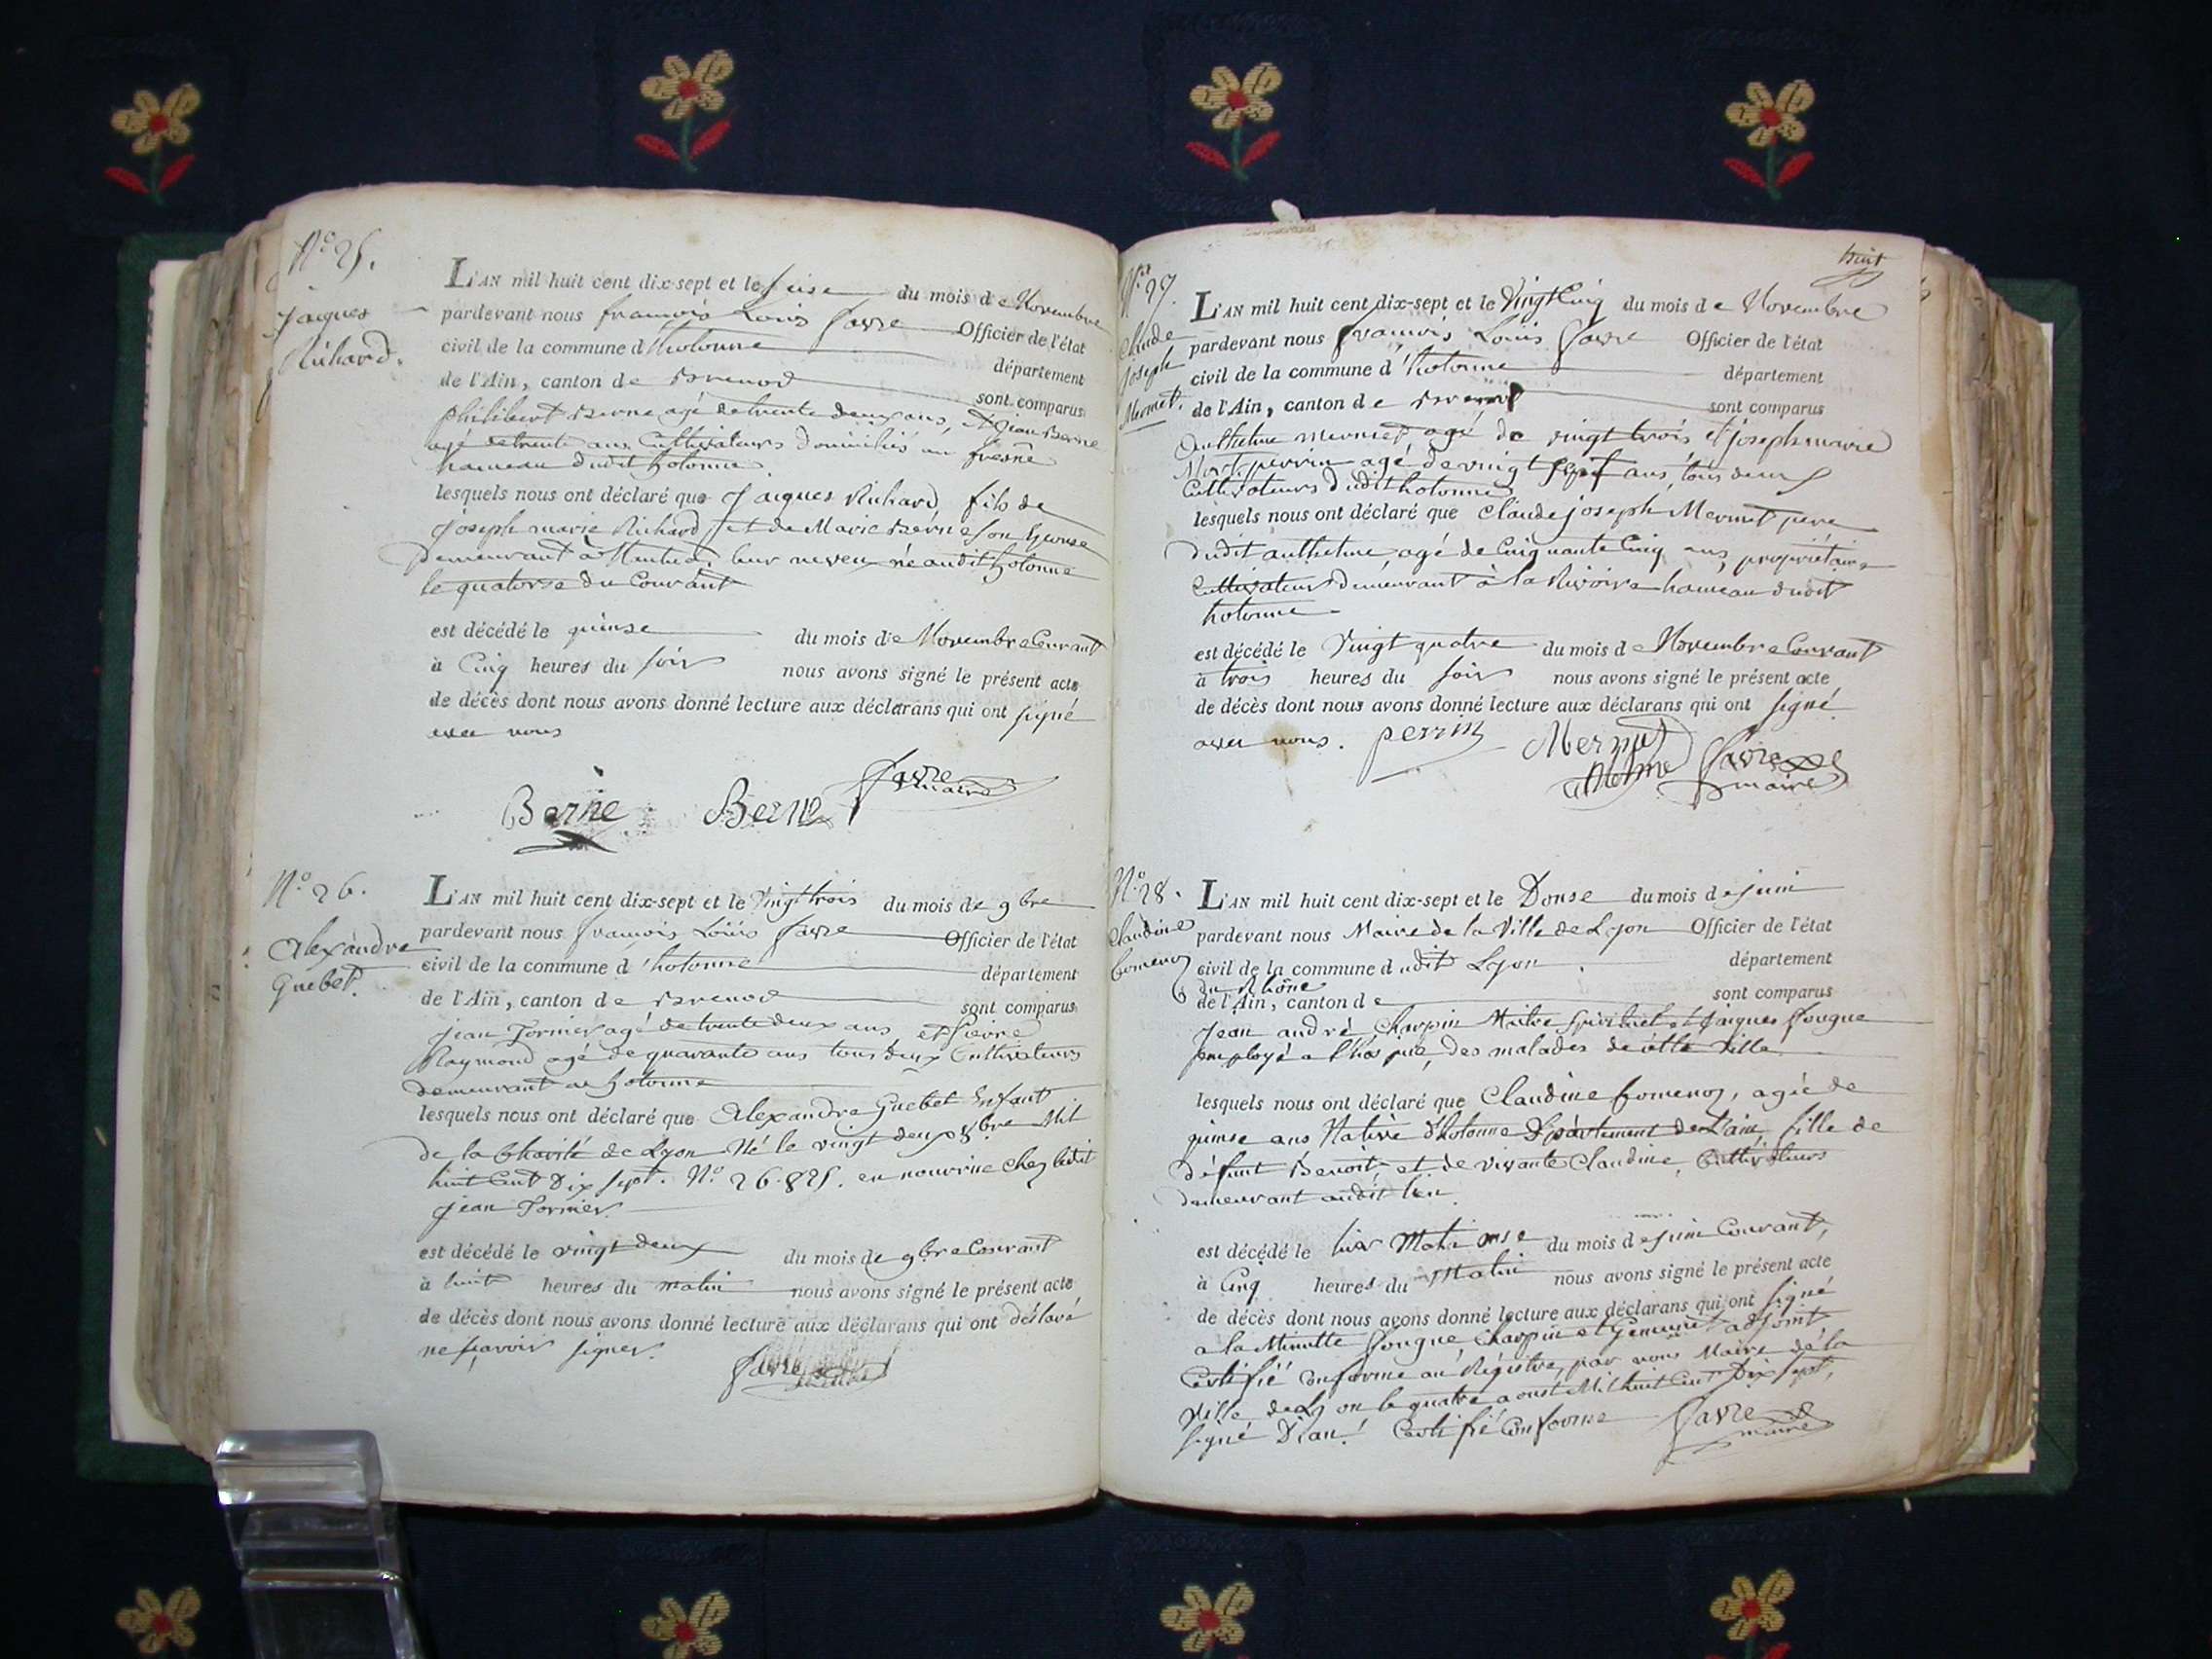 N.º 25.
Jaiques
Richard.
L'AN mil huit cent dix-sept et le seise du mois de Novembre
pardevant nous françois Louis favre Officier de l'état
civil de la commune d'hotonne département
de l'Ain, canton de Brenod sont comparus
philibert Berne agé de trente deux ans, et jean Berne
agé de trente ans Cultivateurs domiciliés au fresne
hameau dudit hotonne
lesquels nous ont déclaré que Jaiques Richard, fils de
Joseph marie Richard et de Marie Berne son Epouse
Demeurant à Nantua, leur neveu né audit hotonne
le quatorse du Courant
est décédé le quinse du mois de Novembre Courant
à Cinq heures du soir nous avons signé le présent acte
de décès dont nous avons donné lecture aux déclarans qui ont signé
avec nous
Berne Berne favre
maire
N.º 26.
Alexandre
Guebet.
L'AN mil huit cent dix-sept et le Vingt trois du mois de 9bre
pardevant nous françois Louis favre Officier de l'état
civil de la commune d'hotonne département
de l'Ain, canton de Brenod sont comparus
Jean Formier agé de trente deux ans et pierre
Raymond agé de quarante ans tous deux Cultivateurs
demeurant a hotonne
lesquels nous ont déclaré que Alexandre Guebet Enfant
de la Charité de Lyon Né le vingt deux 8bre Mil
huit Cent Dix sept. N.º 26.825. en nourrice chez ledit
Jean Formier
est décédé le vingt deux du mois de 9bre Courant
à huit heures du matin nous avons signé le présent acte
de décès dont nous avons donné lecture aux déclarans qui ont déclaré
ne sçavoir signer.
favre
huit
N.º 27.
Claude
Joseph
Mermet.
L'AN mil huit cent dix-sept et le Vingt Cinq du mois de Novembre
pardevant nous françois Louis favre Officier de l'état
civil de la commune d'hotonne département
de l'Ain, canton de Brenod sont comparus
Anthelme Mermet agé de vingt trois et joseph marie
perrin agé de vingt sept ans, tous deux
Cultivateurs dudit hotonne
lesquels nous ont déclaré que Claude joseph Mermet pere
dudit anthelme, agé de Cinquante Cinq ans, propriétaire
Cultivateur demeurant à la Rivoire hameau dudit
hotonne
est décédé le Vingt quatre du mois de Novembre Courant
à trois heures du soir nous avons signé le présent acte
de décès dont nous avons donné lecture aux déclarans qui ont signé
avec nous. perrin Mermet favre
maire
N.º 28.
Claudine
L'AN mil huit cent dix-sept et le Donse du mois de juin
pardevant nous Maire de la Ville de Lyon Officier de l'état
civil de la commune dudit Lyon département
du Rhône
de l'Ain, canton de sont comparus
Jean andré Charpin Maitre Spirituel et Jaiques fougue
employé a l'hospice, des malades de cette Ville
lesquels nous ont déclaré que Claudine, agée de
quinse ans Native d'hotonne Département de L'ain, fille de
défunt Benoit, et de vivante Claudine, Cultivateurs
demeurant audit lieu.
est décédé le hier onse du mois de juin Courant,
à Cinq heures du Matin nous avons signé le présent acte
de décès dont nous avons donné lecture aux déclarans qui ont signé
a la Minutte fougue Charpin et adjoint
Certifié Conforme au Régistre, par nous Maire de la
Ville de Lyon le quatre aoust Mil huit Cent Dix sept,
signé Certifié Conforme favre
maire